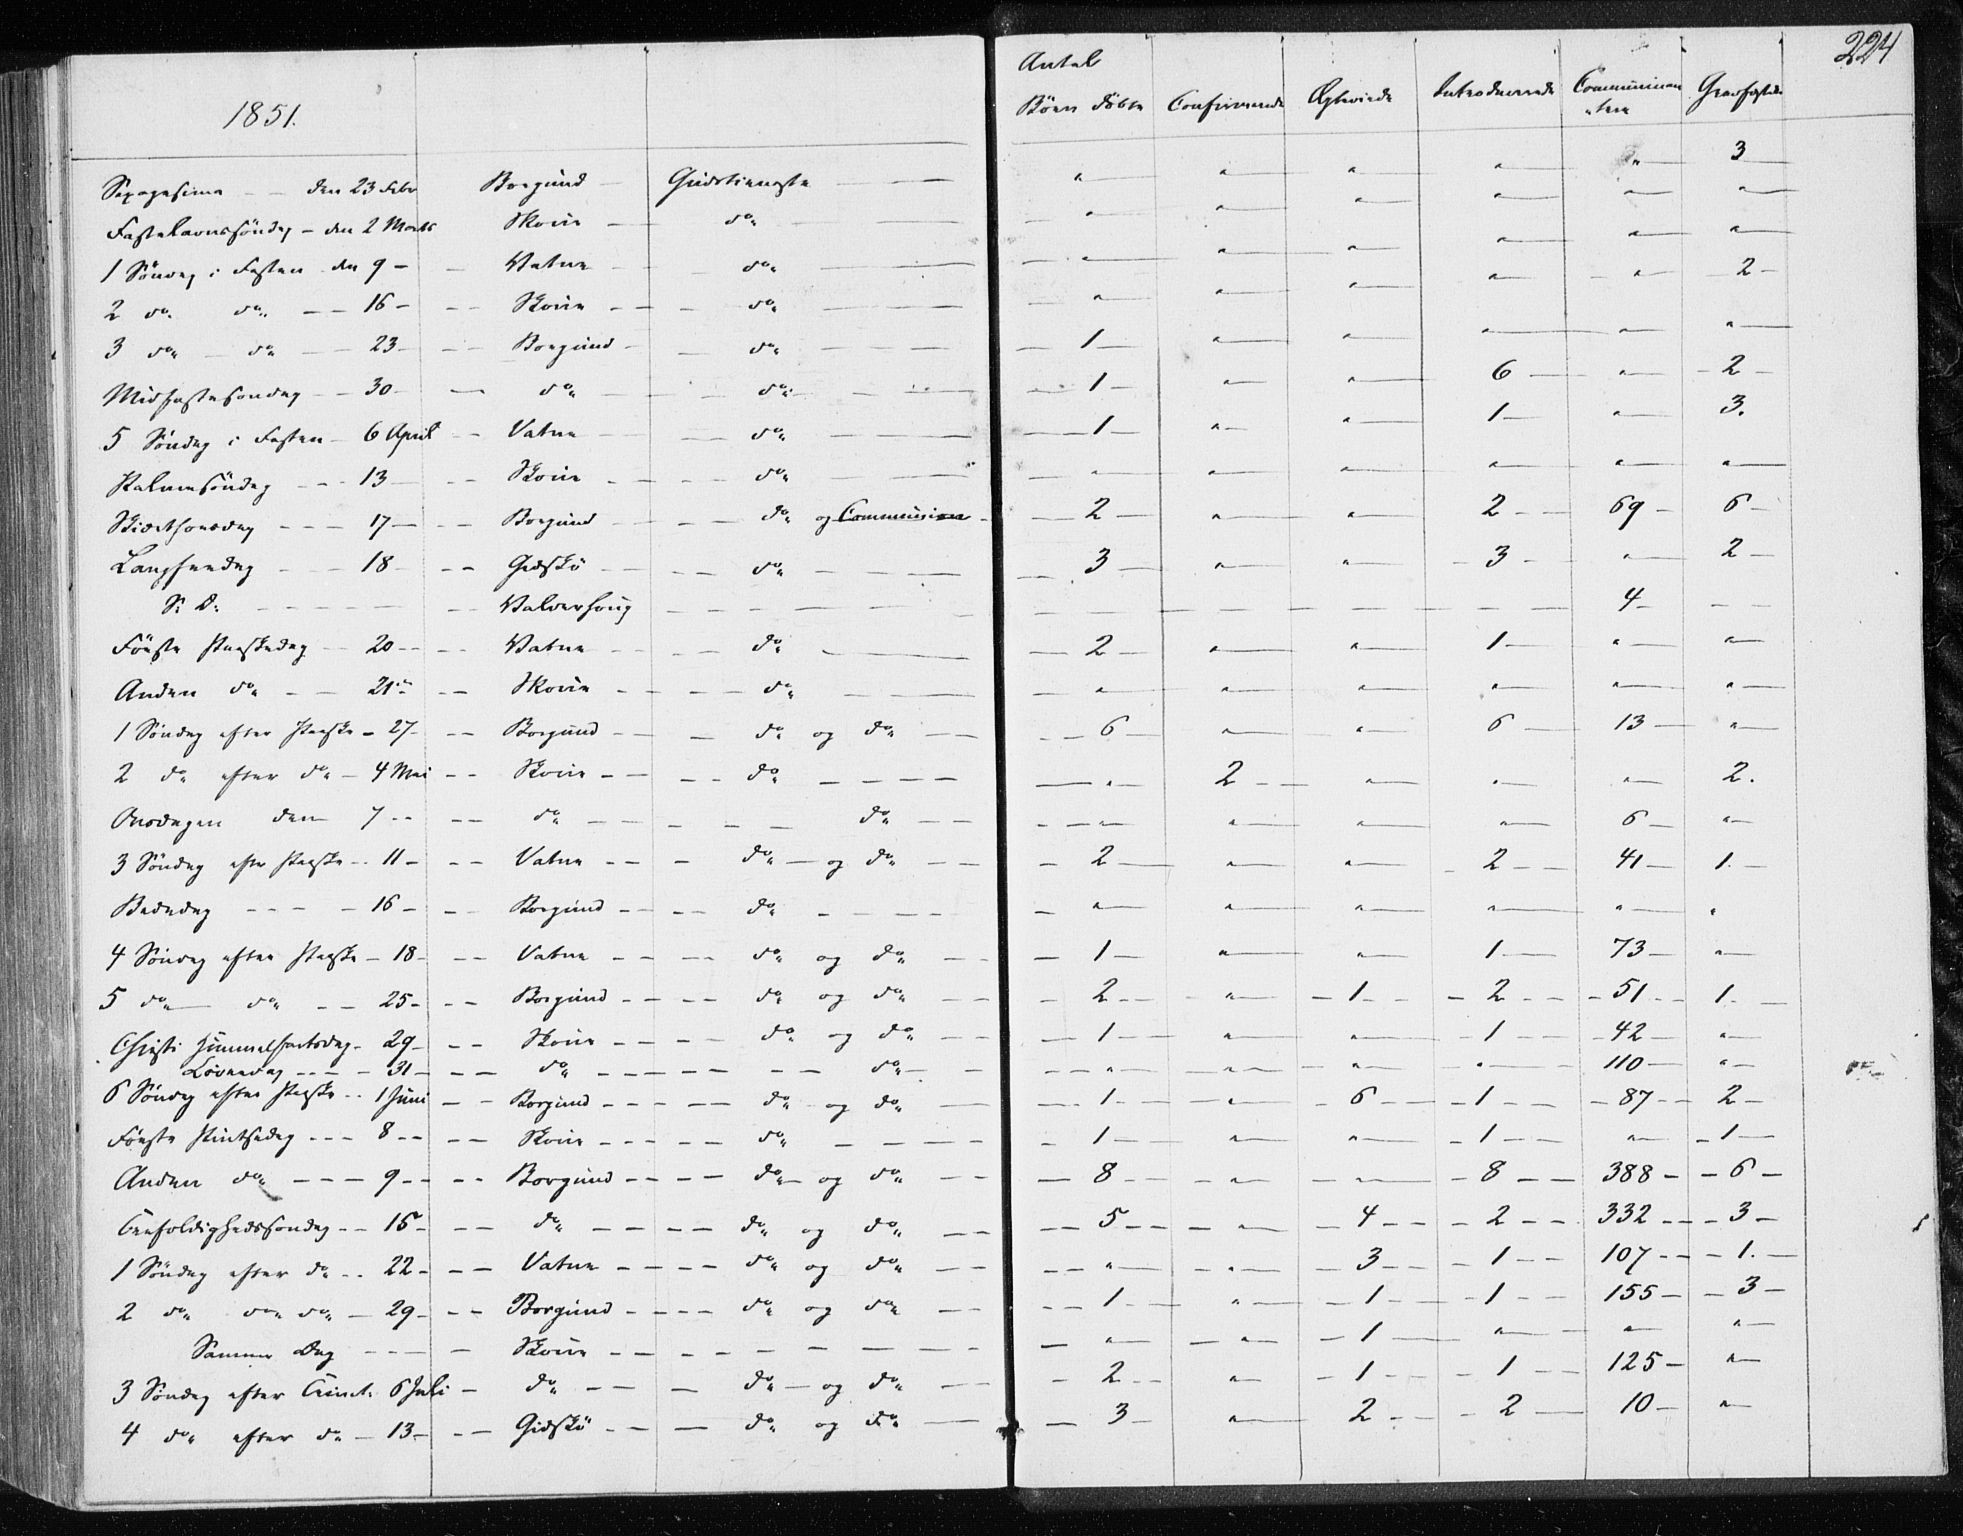 224
1851.
Antal
Børn döbte Confirmerede Ægteviede Introducerede Communicanterne Gravfæstede
Sexagesima — — den 23 Febr Borgund — Gudstieneste — — " — " — " — " — " — 3 —
Fastelavnssöndag — den 2 Marts Skoue — do — " — " — " — " — " — " —
1 Söndag i Fasten den 9 — — Vatne — do — " — " — " — " — " — " —
2 do do — — 16 — — — Skoue — — do — " — " — " — " — " — 2 —
3 do — do — — 23 — — — Borgund — — do — 1 — " — " — " — " — " —
Midfastesöndag — — 30 — — do — — do — — 1 — " — " — 6 — " — 2 —
5 Söndag i Fasten — 6 April — — Vatne — — do — 1 — " — " — 1 — " — 3.
Palmesöndag — — — 13 — — — Skoue — — — do — " — " — " — " — " — " —
Skiærthorsdag — — — 17 — — — Borgund — — — do og Communion — 2 — " — " — 2 — — 69 — 6 —
Langfredag — — — 18 — — — Gidskö — — — do — — 3 — " — " — 3 — " — 2 —
S: D: — — — — — — Valderhoug — — — — — — — — — — 4 — — —
Förste Paaskedag — — 20 — — — Vatne — — — do — 2 — " — " — 1 — " — " —
Anden do — — — 21 — — — Skoue — — — do — " — " — " — " — " — " —
1 Söndag efter Paaske — 27 — — — Borgund — — — do og do — — 6 — " — " — 6 — 13 — " —
2 do efter do — 4 Mai — — Skoue — — — do — — — " — 2 — — " — " — " — 2.
Onsdagen den 7 — — — — do — — — — do — — " — " — " — " — 6 — " —
3 Söndag efter Paaske — — 11 — — — Vatne — — — do — og do — — 2 — " — " — 2 — — 41 — 1. —
Bededag — — — — 16 — — — Borgund — — — do — — — " — " — " — " — " — "
4 Söndag efter Paaske — 18 — — — Vatne — — — do og do — — 1 — " — " — 1 — 73 — " —
5 do — do — — 25 — — — Borgund — — — do og do — — 2 — — " — 1 — — 2 — — 51 — — 1. —
Christi Himmelfartsdag — 29 — — — Skoue — — — do og do — — 1 — " — " — 1 — 42 — " —
Löverdag — — — 31 — — — do — — — — — do — — " — " — " — " — 110 — " —
6 Söndag efter Paaske — — 1 Juni — — Borgund — — — do — og do — — 1 — " — 6 — — 1 — — 87 — — 2 —
Förste Pintsedag — — — 8 — — — — Skoue — — — do — — — 1 — " — " — 1 — — " — 1 —
Anden do — — — 9 — — — — Borgund — — — do — og do — — 8 — — " — " — 8 — — 388 — — 6 —
Treefoldighedssöndag — — 15 — — — do — — — do og do — — 5 — — " — 4 — — 2 — — 332 — — 3 —
1 Söndag efter do — — 22 — — — Vatne — — — do og do — — " — " — 3 — — 1 — — 107 — — 1. —
2 do do do — 29 — — — Borgund — — — do og do — — 1 — — " — 1 — — 1 — — 155 — — 3 —
Samme Dag — — — — Skoue — — — — — — — " — " — 1 — " — " — " —
3 Söndag efter Trinit. 6 Juli — do — — — do — og do — — 2 — — " — 1 — — 1 — 125 — " —
4 do efter do — 13 — — — Gidskö — — — do og do — — 3 — " — 2 — — 2 — 10 — " —